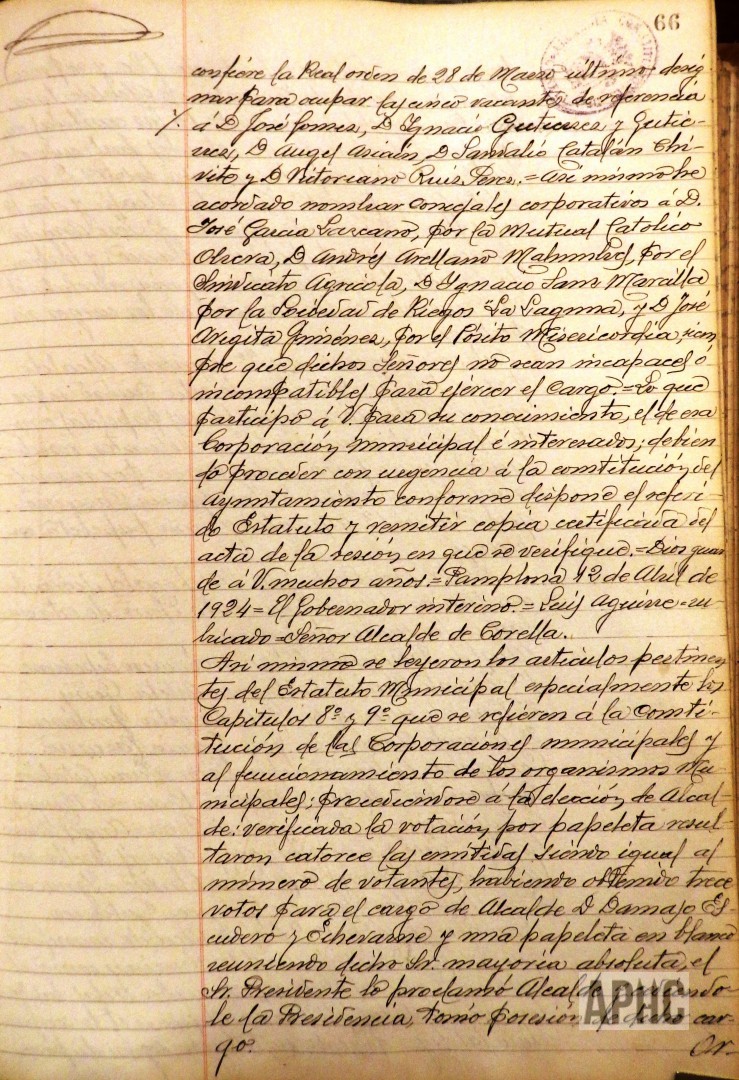 66
confiere la Real orden de 28 de Marzo último desig-
nar para ocupar las cinco vacantes de referencia
á D. José Gomez, D. Ignacio Gutierrez y Gutie-
rrez, D. Angel Asiaín, D. Sandalio Catalán Chi-
vite y D. Vitoriano Ruiz Perez.= Asi mismo he
acordado nombrar concejales corporativos á D.
José Garcia Lazcano, por la Mutual Catolico
Obrera, D. Andrés Arellano por el
Sindicato Agricola, D. Ygnacio Sanz
por la Sociedad de Riegos "La Laguna, y D. José
Argita Giménez, por el Pósito Misericordia, siem
pre que dichos Señores no sean incapaces ó
incompatibles para ejercer el cargo.= Lo que
participo á V. para su conocimiento, el de esa
Corporación municipal é interesados; debien
do proceder con urgencia á la constitución del
Ayuntamiento conforme dispone el referi-
do Estatuto y remitir copia certificada del
acta de la sesión en que se verifique.= Dios guar
de á V. muchos años.= Pamplona 12 de Abril de
1924= El Gobernador interino.= Luis Aguirre=ru-
bricado=Señor Alcalde de Corella.
Asi mismo se leyeron los articulos pertinen
tes del Estatuto Municipal especialmente los
Capitulos 8º y 9º que se refieren á la consti-
tución de las Corporaciones municipales y
al funcionamiento de los organismos Mu-
nicipales; procediendose á la elección de Alcal
de: verificada la votación por papeleta resul-
taron catorce las emitidas siendo igual al
número de votantes, habiendo obtenido trece
votos para el cargo de Alcalde D. Damaso Es
cudero y Echevarne y una papeleta en blanco
reuniendo dicho Sr. mayoria absoluta, el
Sr. Presidente lo proclamó
le la Presidencia, tomó posesión de dicho car-
go.
Or-
APHC